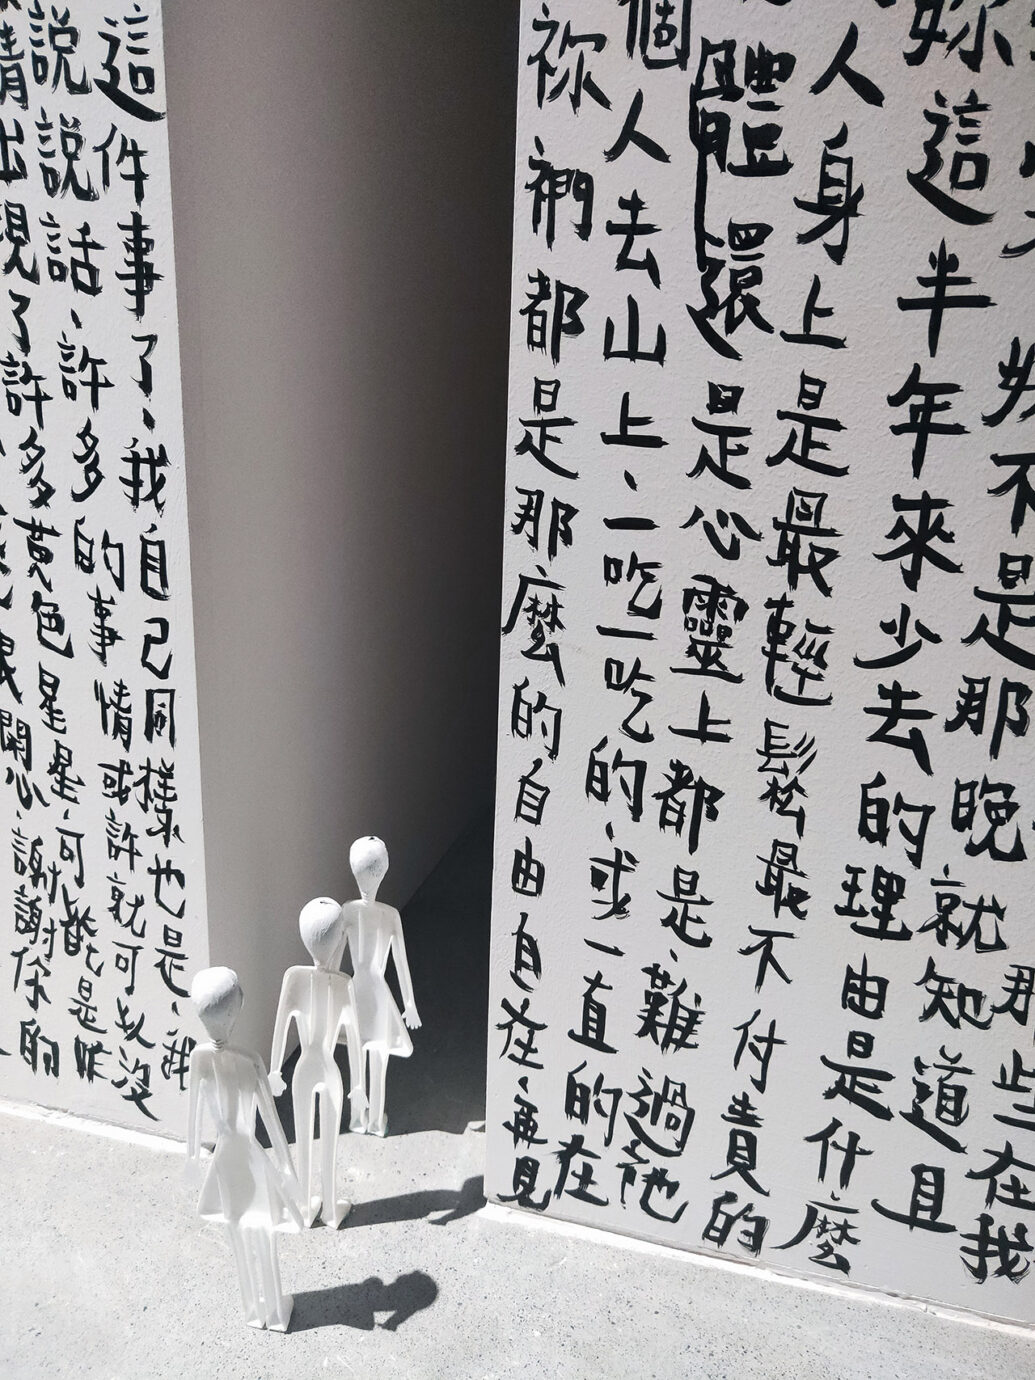 那些在我
不是那晚就知道且
妳這半年來少去的理由是什麼
人身上是最輕鬆最不付責的
體還是心靈上都是、難過他
個人去山上、一吃一吃的、或一直的在
祢們都是那麼的自由自在、再見
這件事了、我自己同樣也是、我
說說話、許多的事情或許就可以沒
情出現了許多黃色星星、可能是昨
開心、謝謝你的